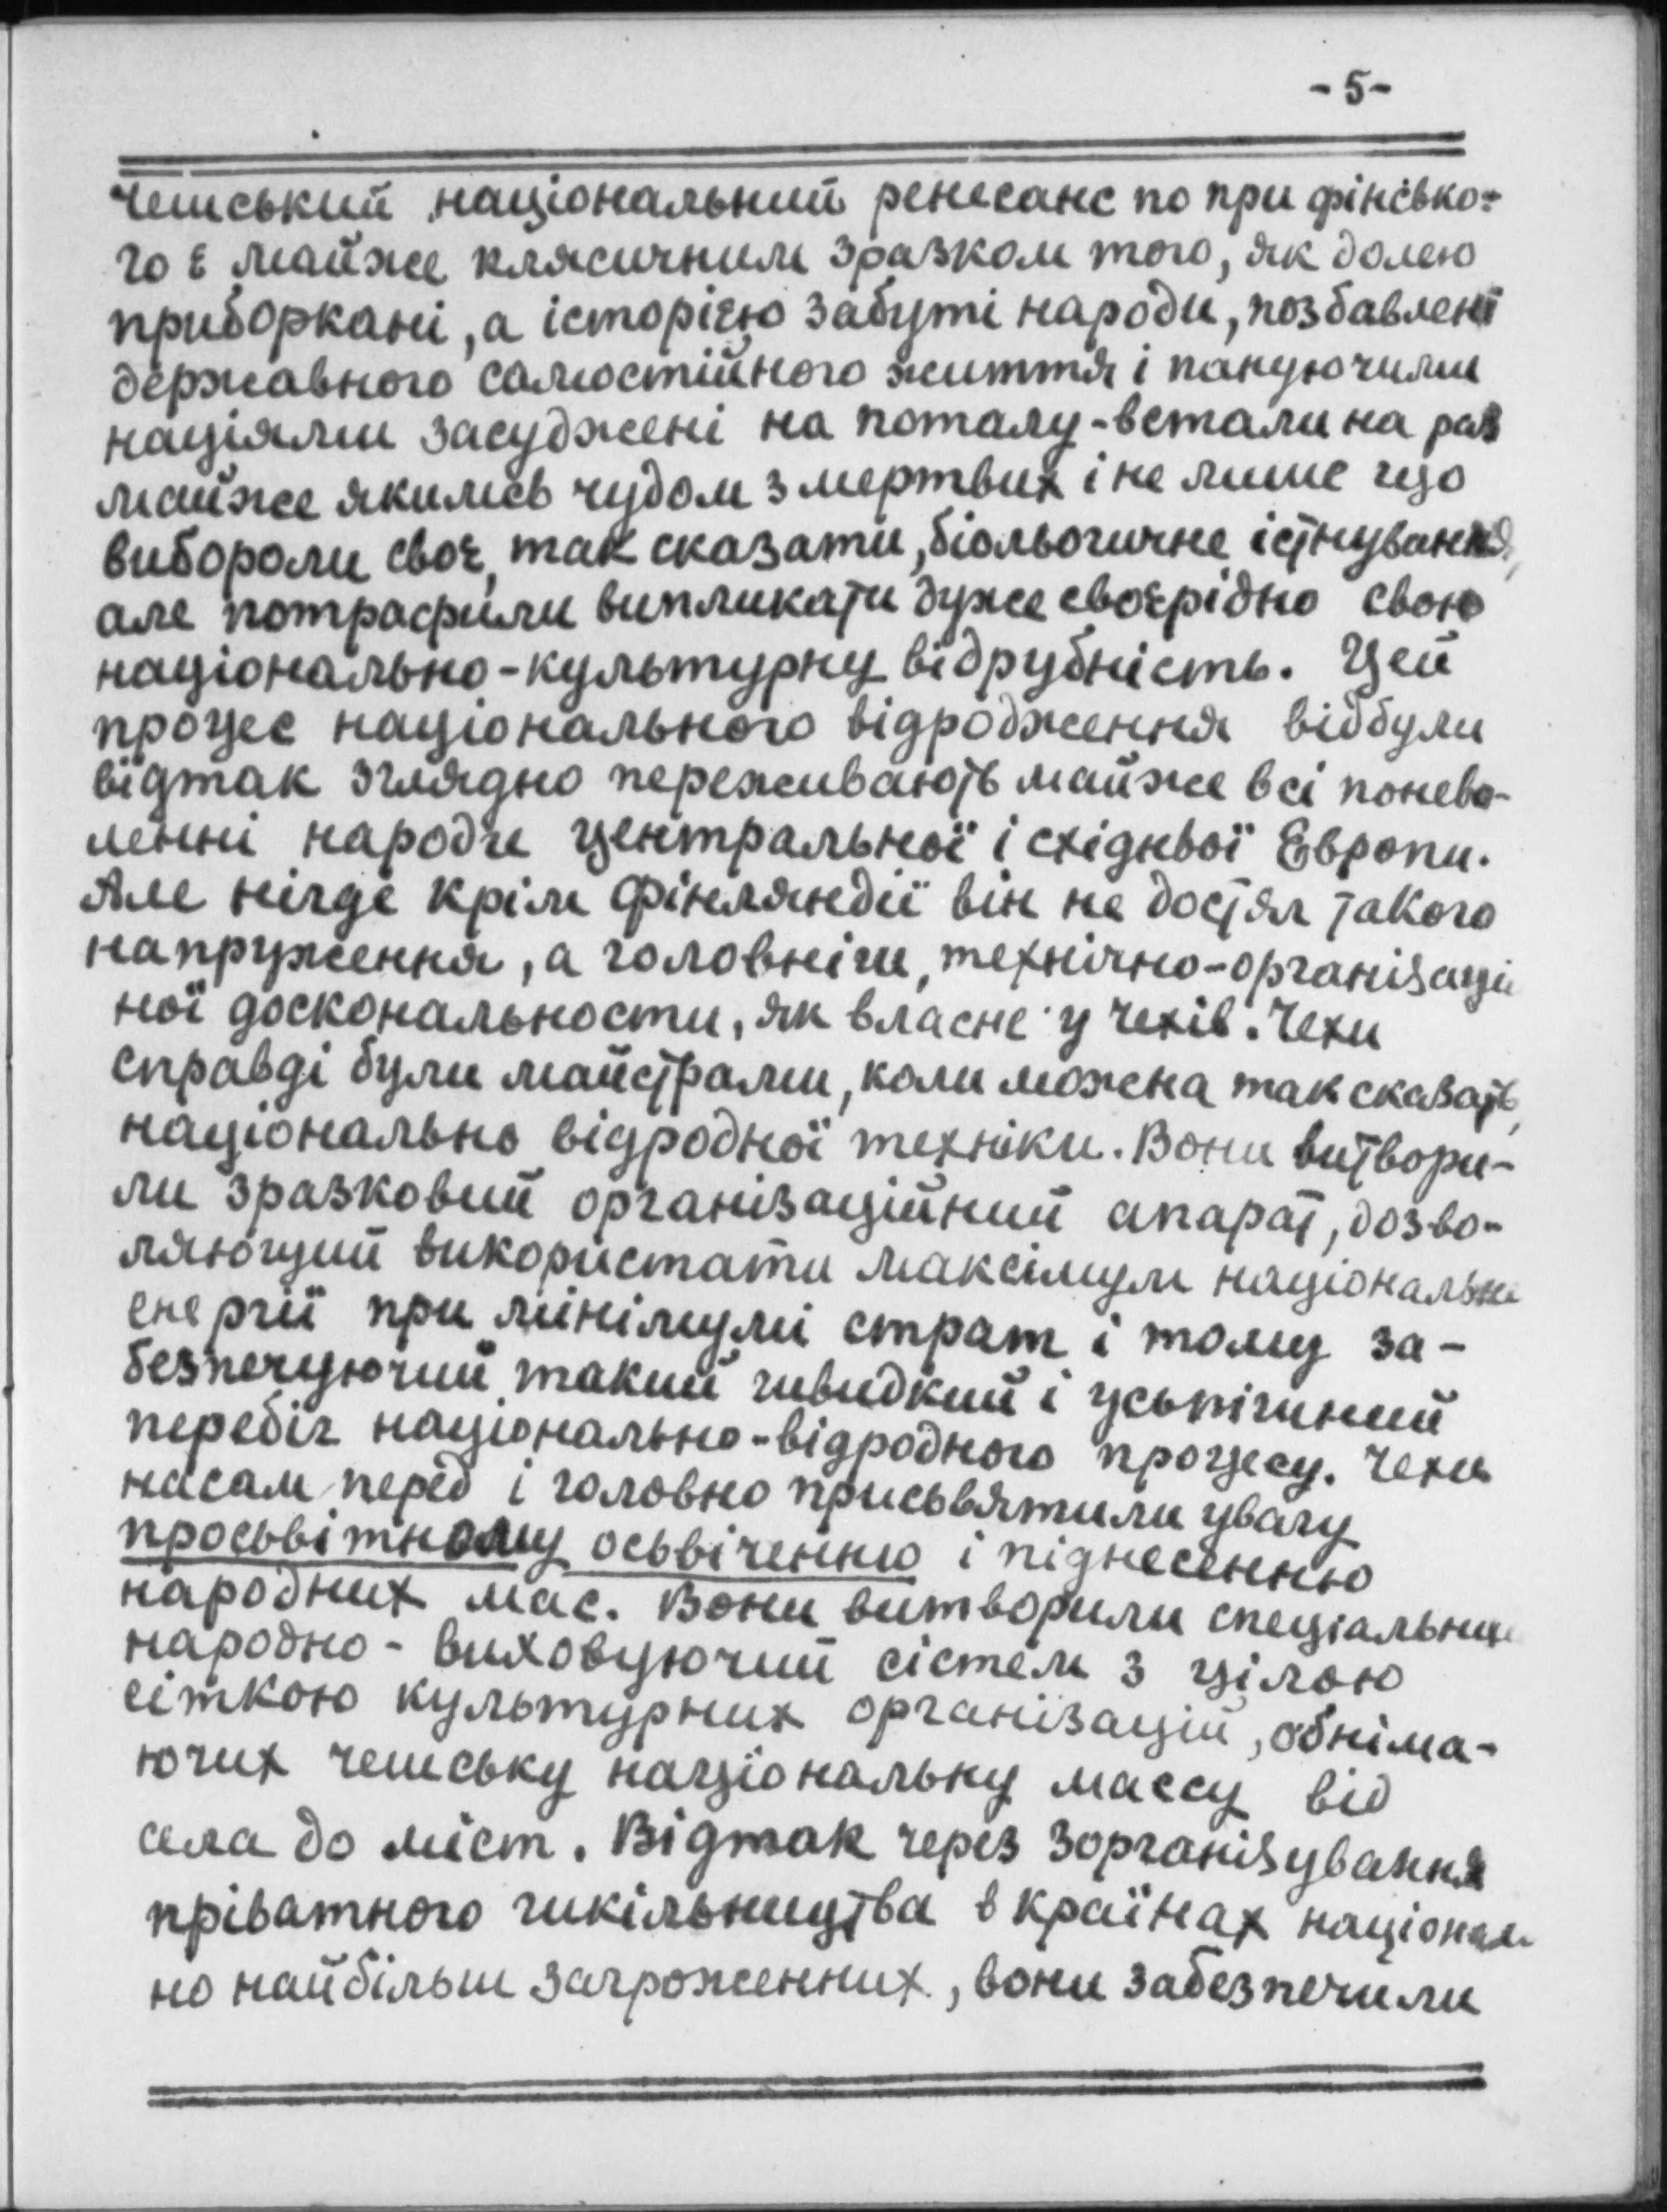 - 5 -
Чешський національний ренесанс по при фінсько-
го є майже клясичним зразком того, як долею
приборкані, а історією забуті народи, позбавлені
державного самостійного життя і пануючими
націями засуджені на поталу - встали на раз
майже якимсь чудом з мертвих і не лише що
вибороли своє, так сказати, більогичне істнування,
але потрафили випликати дуже своєрідно свою
національно-культурну відрубність. Цей
процес національного відродження відбули
відтак зглядно переживають майже всі понево-
ленні народи центральної і східньої Европи.
Але нігде крім Фінляндії він не достял такого
напруження, а головніш, технічно-організацій
ної доскональности, як власне у чехів. Чехи
справді були майстрами, коли можна так сказать,
національно відродної техніки. Вони витвори-
ли зразковий організаційний апарат, дозво-
ляющий використати максімум національні
енергії при мінімумі страт і тому за-
безпечуючий такий швидкий і усьпішний
перебіг національно-відродного процесу. Чехи
насам перед і головно присьвятили увагу
просьвітному осьвіченню і піднесенню
народних мас. Вони витворили спеціальний
народно - виховуючий сістем з цілою
сіткою культурних організацій, обніма-
ючих чешську національну массу від
села до міст. Відтак через зорганізування
пріватного шкільництва в країнах націонал
но найбільш загроженних, вони забезпечили